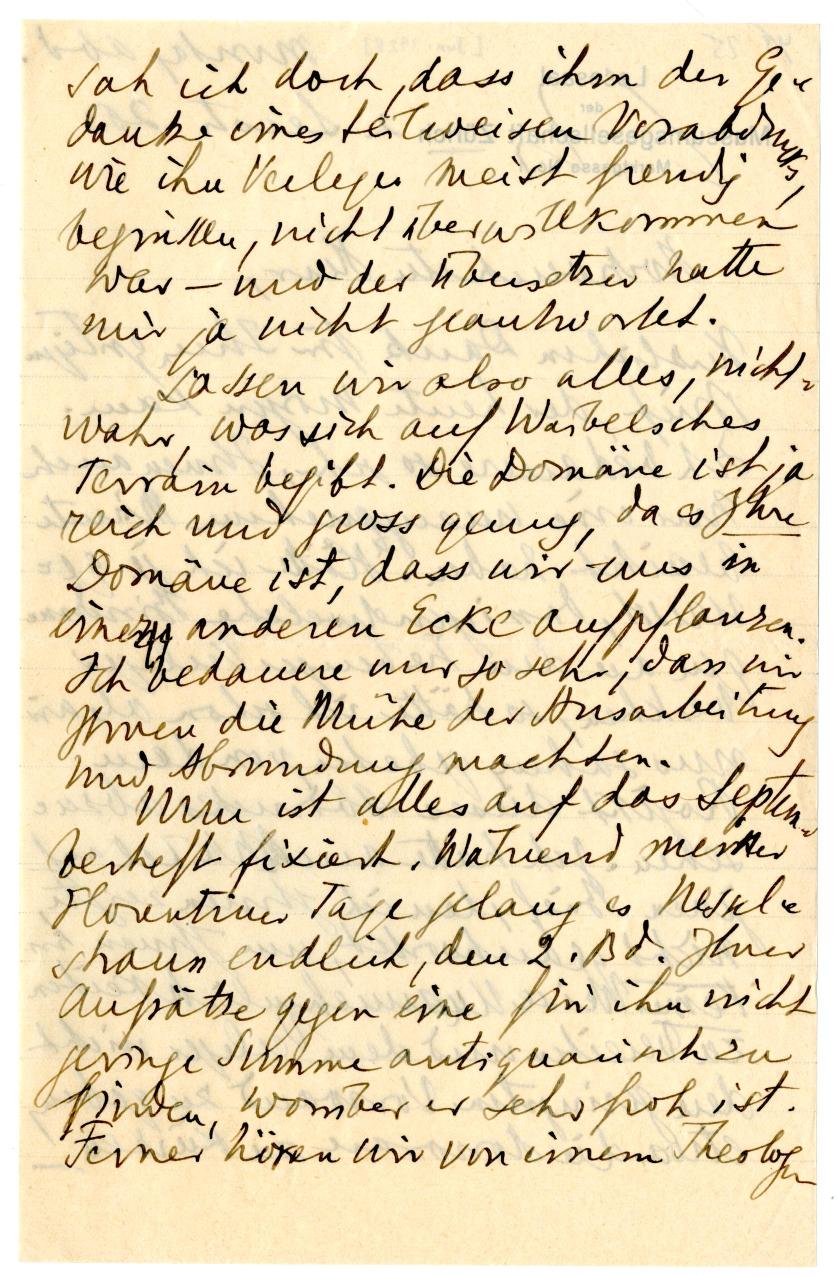 sah ich doch, dass ihm der Ge-
danke eines teilweisen Vorabdrucks,
wie ihn Verleger meist freudig
begrüssen, nicht überwillkommen
war – und der Übersetzer hatte
mir ja nicht geantwortet.
Lassen wir also alles, nicht-
wahr, was sich auf Waibelsches
Terrain begibt. Die Domäne ist ja
reich und gross genug, da es Ihre
Domäne ist, dass wir uns in
einer anderen Ecke aufpflanzen.
Ich bedauere nur so sehr, dass wir
Ihnen die Mühe der Ausarbeitung
und Abrundung machten.
Nun ist alles auf das Septem-
berheft fixiert. Während meiner
Florentiner Tage gelang es Nessel-
straus endlich, den 2. Bd. Ihrer
Aufsätze gegen eine für ihn nicht
geringe Summe antiquarisch zu
finden, worüber er sehr froh ist.
Ferner hören wir von einem Theologen